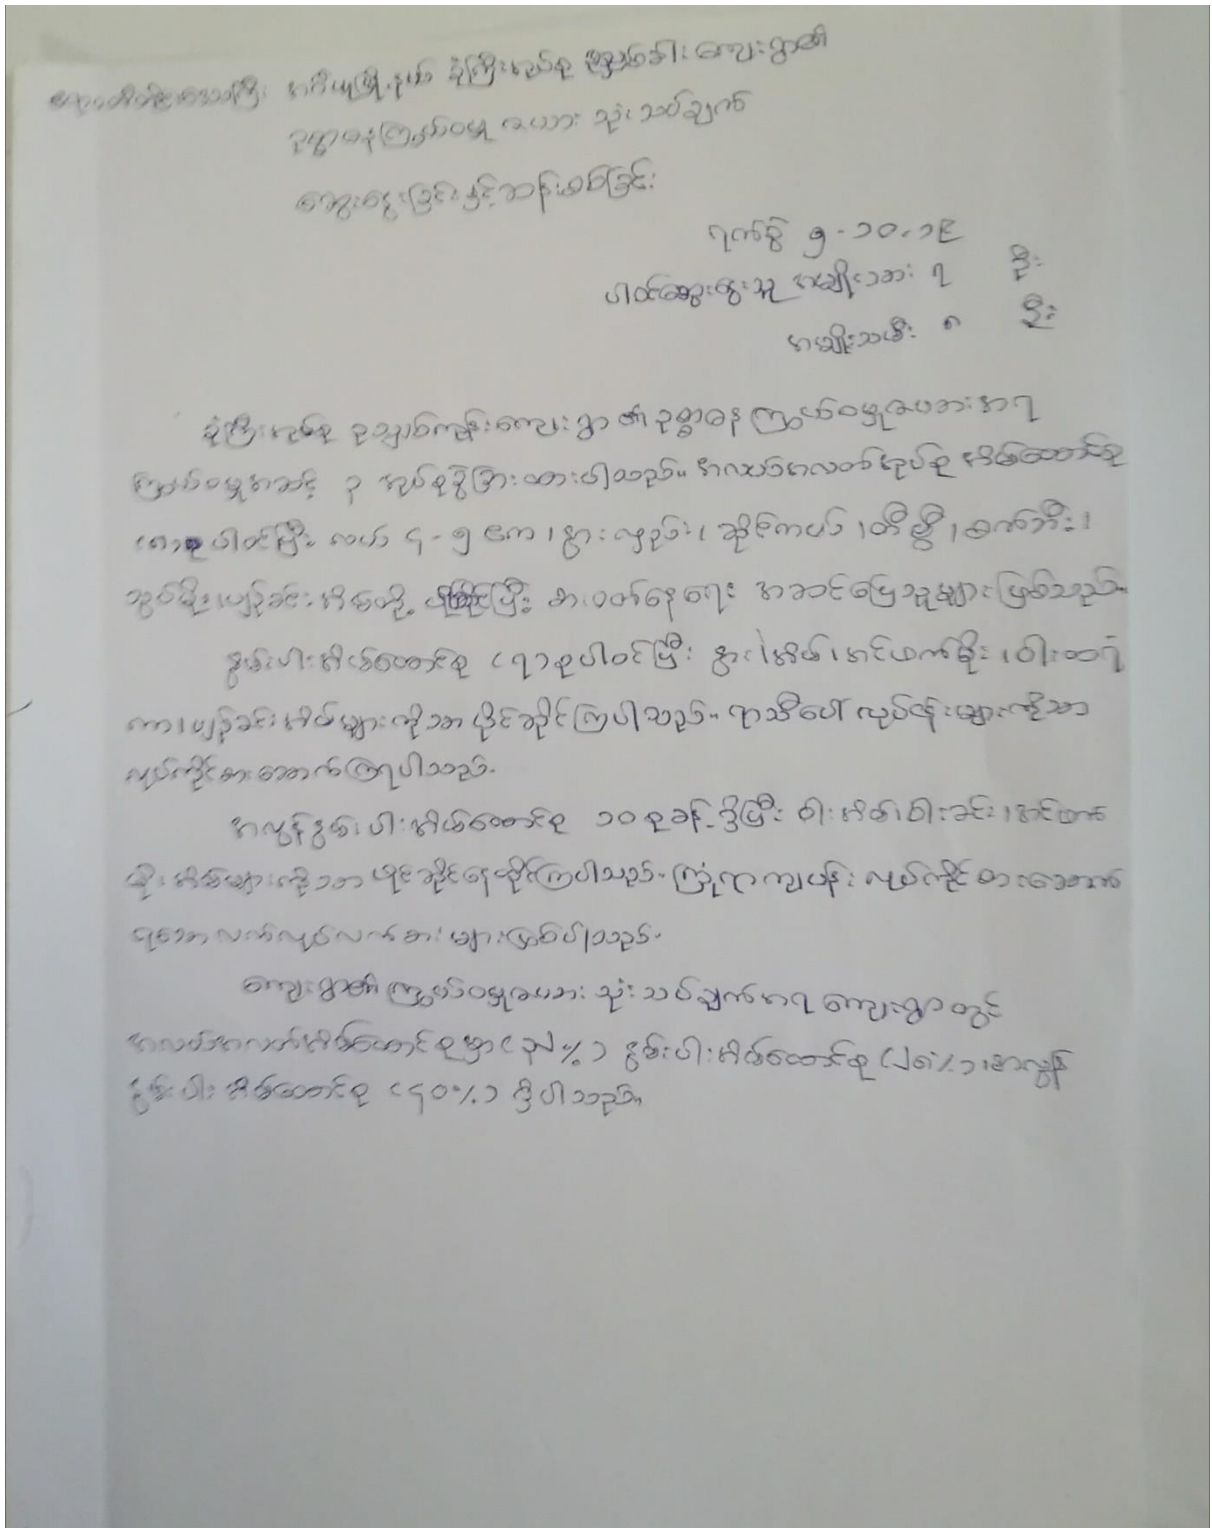 ဧရာဝတီတိုင်းဒေသကြီး အင်္ဂပူမြို့နယ် ခုံကြီးအုပ်စု ကျေးရွာ၏
ဥစ္စာဓနကြွယ်ဝမှု ဇယား သုံးသပ်ချက်
ဆွေးနွေးခြင်းနှင့်ဆန်းစစ်ခြင်း
ရက်စွဲ ၅-၁၀-၁၉
ပါဝင်ဆွေးနွေးသူ အမျိုးသား ၇ ဦး
အမျိုးသမီး ၈ ဦး
ခုံကြီးအုပ်စု ကျေးရွာ ၏ ဥစ္စာဓန ကြွယ်ဝမှုဇယားအရ
ကြွယ်ဝမှုအဆင့် ၃ အုပ်စုခွဲခြားထားပါသည်။ အလယ်အလတ်အုပ်စု အိမ်ထောင်စု
(၈)စုပါဝင်ပြီး လယ် ၄-၅ ဧက၊ နွား၊ လှည်း၊ ဆိုင်ကယ်၊ တီဗွီ၊
သွပ်မိုး၊ ပျဉ်ခင်းအိမ်တို့ ပိုင်ဆိုင်ပြီး စားဝတ်နေရေး အဆင်ပြေသူများဖြစ်သည်။
နွမ်းပါးအိမ်ထောင်စု (၇)စုပါဝင်ပြီး နွား၊ အိမ်၊ အင်ဖက်မိုး၊ ဝါးထရံ
ကာ၊ ပျဉ်ခင်းအိမ်များကိုသာ ပိုင်ဆိုင်ကြပါသည်။ ရာသီပေါ် လုပ်ငန်းများကိုသာ
လုပ်ကိုင်စားသောက်ကြရပါသည်။
အလွန်နွမ်းပါးအိမ်ထောင်စု ၁၀ စုခန့်ရှိပြီး ဝါးအိမ်၊ ဝါးခင်း၊ အင်ဖက်
မိုးအိမ်များကိုသာ ပိုင်ဆိုင်နေထိုင်ကြပါသည်။ ကြုံရာကျပန်း လုပ်ကိုင် စားသောက်
ရသော လက်လုပ်လက်စားများဖြစ်ပါသည်။
ကျေးရွာ၏ ကြွယ်ဝမှုဇယား သုံးသပ်ချက်အရ ကျေးရွာတွင်
အလယ်အလတ်အိမ်ထောင်စုမှာ (၃၂%) နွမ်းပါးအိမ်ထောင်စု (၂၈%)၊ အလွန်
နွမ်းပါးအိမ်ထောင်စု (၄၀%) ရှိပါသည်။